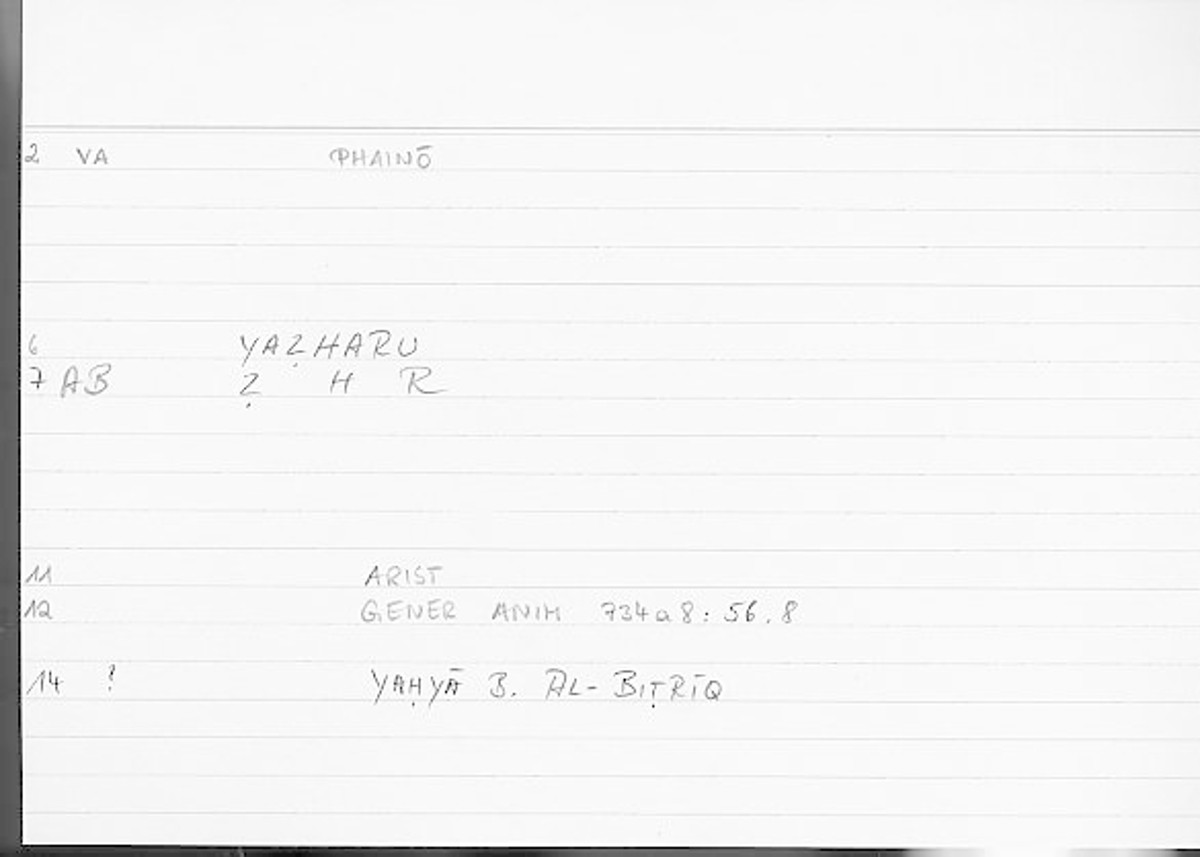 2 VA PHAINŌ
6 YAẒHARU
7 AB Ẓ H R
11 ARIST
12 GENER ANIM 734a8: 56.8
14 ? YAḤYĀ B. AL-BIṬRĪQ